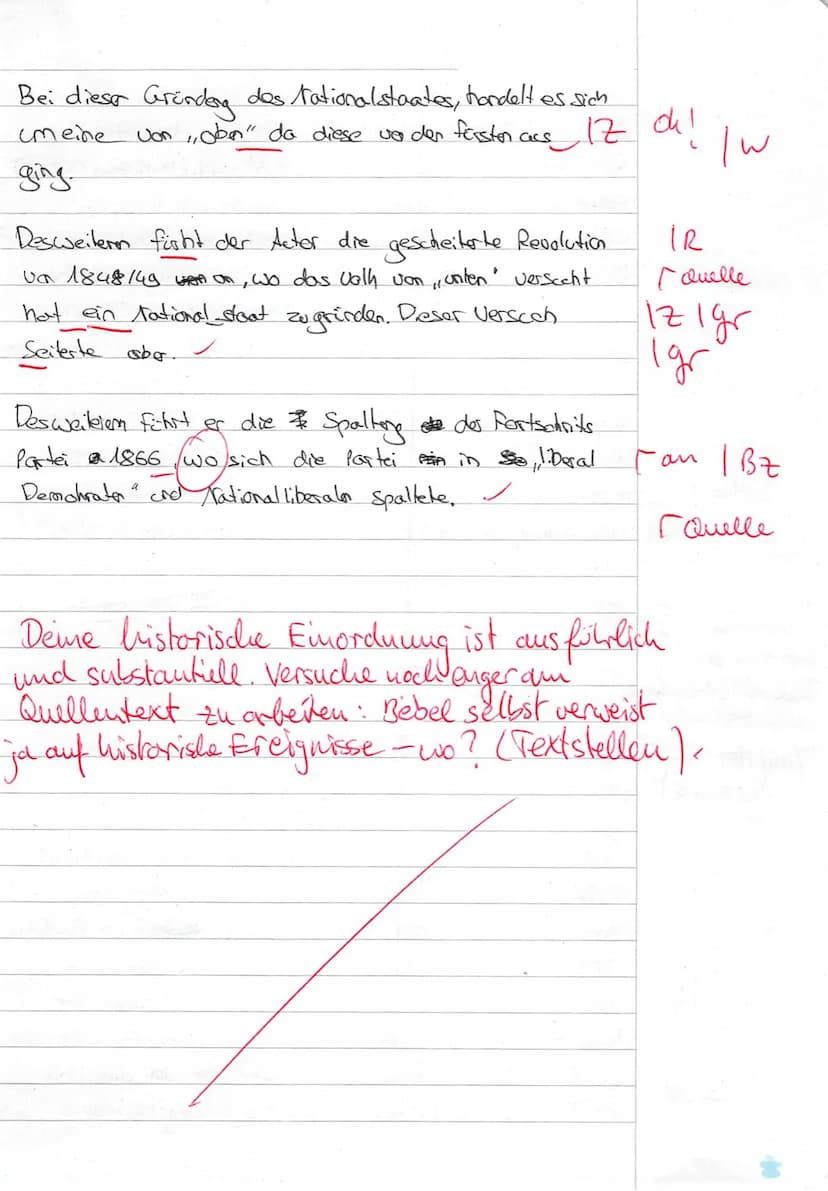 Bei dieser Gründung des Nationalstaates, handelt es sich
um eine von „oben" da diese von den Fürsten aus IZ ok! IW
ging.
Desweiteren füht der Autor die gescheiterte Revolution IR
von 1848/49 an, wo das Volk von „unten" versucht Γ Quelle
hat ein National_staat zu gründen. Dieser Versuch IZ Igr
Seiterte aber. ✓ Igr
Desweiteren führt er die Spaltung der Fortschritts
Partei 1866, wo sich die Partei in „liberal Γ an I Bz
Demokraten" und Nationalliberalen spaltete. ✓
Γ Quelle
Deine historische Einordnung ist ausführlich
und substantiell. Versuche noch enger am
Quellentext zu arbeiten: Bebel selbst verweist
ja auf historische Ereignisse – wo? (Textstellen).